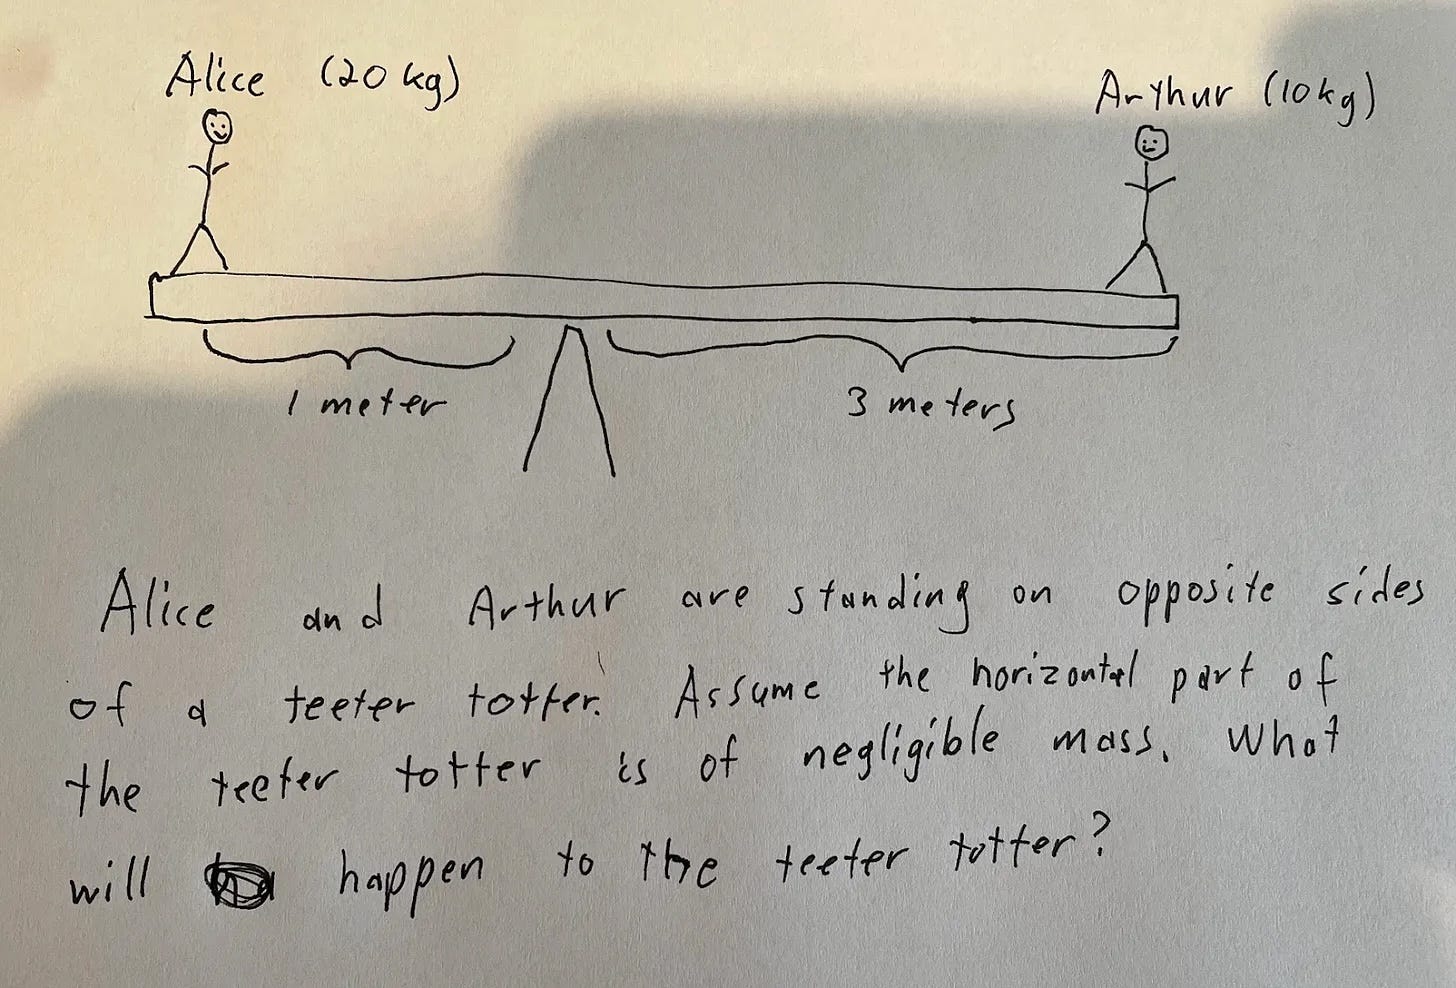 Alice (20 kg)
Arthur (10kg)
1 meter
3 meters
Alice and Arthur are standing on opposite sides
of a teeter totter. Assume the horizontal part of
the teeter totter is of negligible mass. What
will happen to the teeter totter?